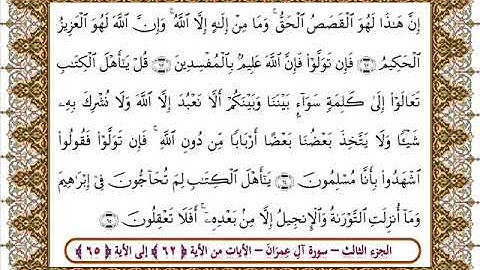 إِنَّ هَٰذَا لَهُوَ ٱلْقَصَصُ ٱلْحَقُّ ۚ وَمَا مِنْ إِلَٰهٍ إِلَّا ٱللَّهُ ۚ وَإِنَّ ٱللَّهَ لَهُوَ ٱلْعَزِيزُ
ٱلْحَكِيمُ ۝٦٢ فَإِن تَوَلَّوْا۟ فَإِنَّ ٱللَّهَ عَلِيمٌۢ بِٱلْمُفْسِدِينَ ۝٦٣ قُلْ يَٰٓأَهْلَ ٱلْكِتَٰبِ
تَعَالَوْا۟ إِلَىٰ كَلِمَةٍ سَوَآءٍۭ بَيْنَنَا وَبَيْنَكُمْ أَلَّا نَعْبُدَ إِلَّا ٱللَّهَ وَلَا نُشْرِكَ بِهِۦ
شَيْـًٔا وَلَا يَتَّخِذَ بَعْضُنَا بَعْضًا أَرْبَابًا مِّن دُونِ ٱللَّهِ ۚ فَإِن تَوَلَّوْا۟ فَقُولُوا۟
ٱشْهَدُوا۟ بِأَنَّا مُسْلِمُونَ ۝٦٤ يَٰٓأَهْلَ ٱلْكِتَٰبِ لِمَ تُحَآجُّونَ فِىٓ إِبْرَٰهِيمَ
وَمَآ أُنزِلَتِ ٱلتَّوْرَىٰةُ وَٱلْإِنجِيلُ إِلَّا مِنۢ بَعْدِهِۦٓ ۚ أَفَلَا تَعْقِلُونَ ۝٦٥
الجزء الثالث - سورة آلِ عِمرَانَ - الآيات من الآية ﴿٦٢﴾ إلى الآية ﴿٦٥﴾